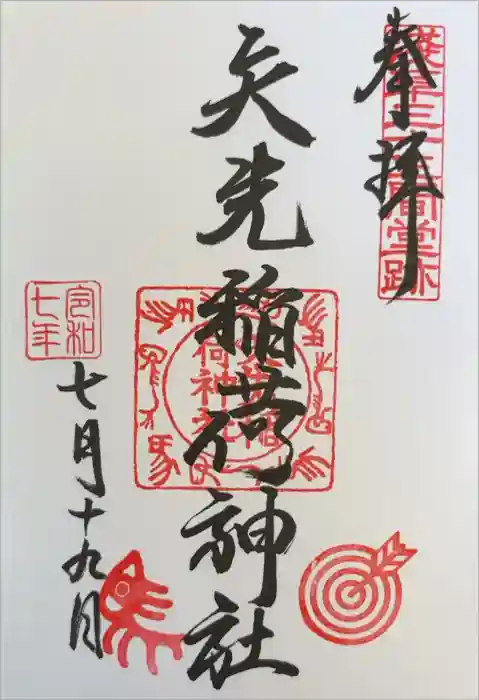 奉拝
浅草三十三間堂跡
矢先稲荷神社
令和
七年
七月十九日